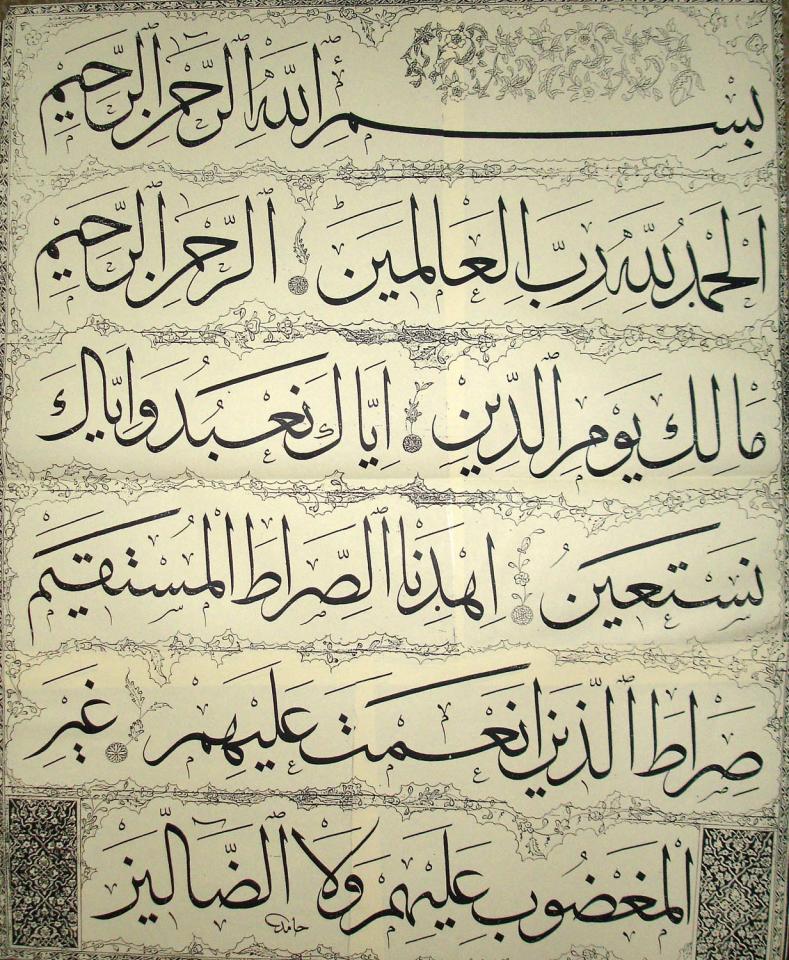 بِسْمِ اللهِ الرَّحْمٰنِ الرَّحِيمِ
اَلْحَمْدُ لِلّٰهِ رَبِّ الْعَالَمِينَ اَلرَّحْمٰنِ الرَّحِيمِ
مَالِكِ يَوْمِ الدِّينِ اِيَّاكَ نَعْبُدُ وَاِيَّاكَ
نَسْتَعِينُ اِهْدِنَا الصِّرَاطَ الْمُسْتَقِيمَ
صِرَاطَ الَّذِينَ اَنْعَمْتَ عَلَيْهِمْ غَيْرِ
الْمَغْضُوبِ عَلَيْهِمْ وَلَا الضَّالِّينَ
حامد